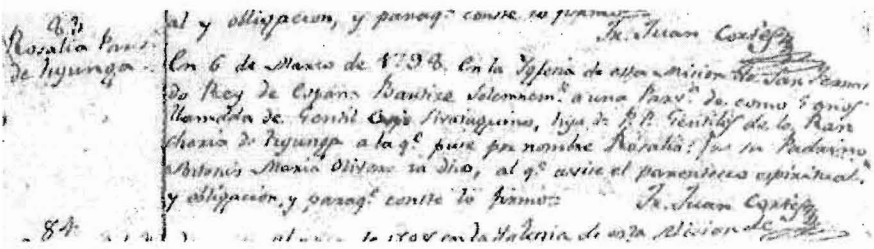 al y obligacion, y paraq.e conste lo firmo=
Fr. Juan Cortés
83
Rosalia Parv.
de hyunga
En 6 de Marzo de 1798. En la Yglesia de esta Mision de San Fernan
do Rey de España Bautize Solemnem.te a una Parv.a de como 5 años
llamada de Gentil, hija de P.P. Gentiles de la Ran
cheria de hyunga a la q.e puse por nombre Rosalia: fue su Padrino
Antonio Maria ya dho, al q.e avise el parentesco espiritual
y obligacion, y paraq.e conste lo firmo=
Fr. Juan Cortés
84
en la Yglesia de esta Mision de